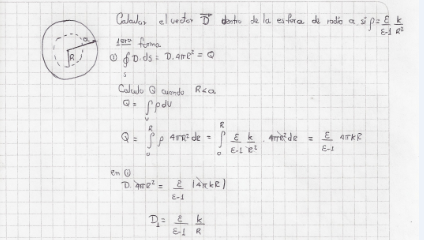 Calcular el vector D dentro de la esfera de radio a si ρ = ε/(ε-1) k/R²
1era forma
① ∮ D·ds = D·4πR² = Q
S
a
R
Calculo Q cuando R<a
Q = ∫ ρ dV
V
Q = ∫₀ᴿ ρ 4πR² dR = ∫₀ᴿ ε/(ε-1) k/R² · 4πR² dR = ε/(ε-1) 4πkR
en ①
D·4πR² = ε/(ε-1) (4πkR)
D₁ = ε/(ε-1) k/R